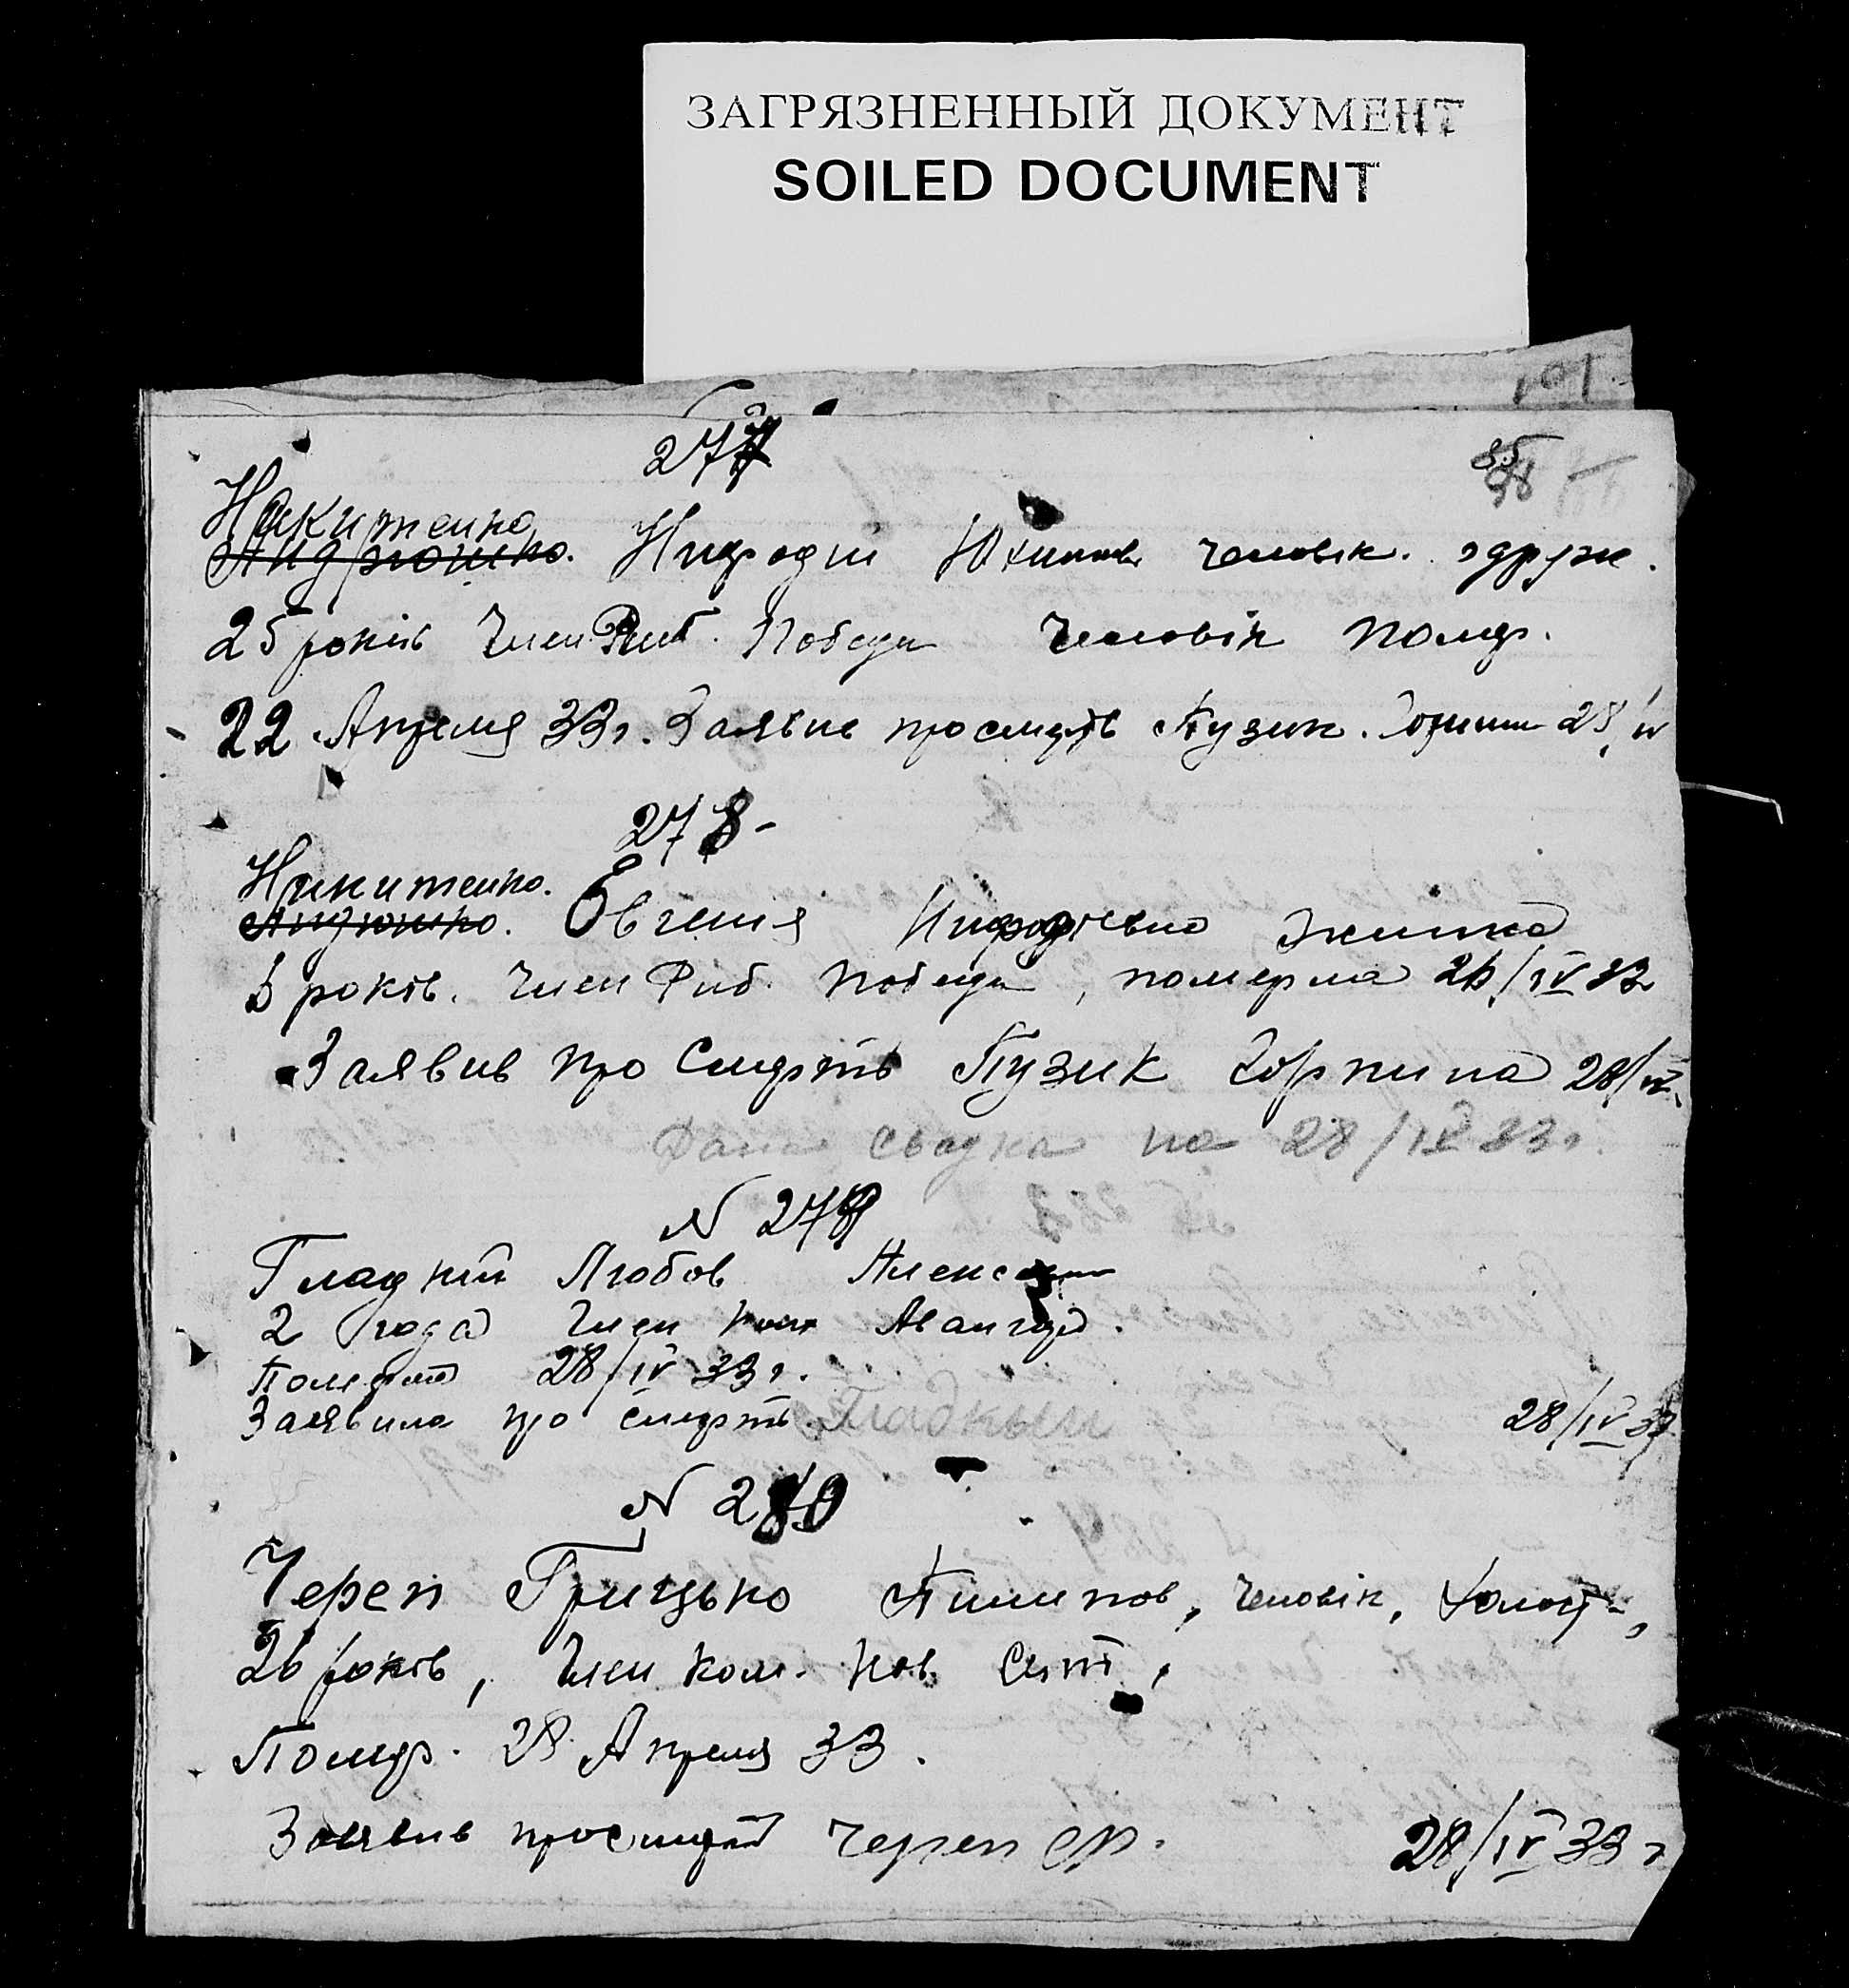 ЗАГРЯЗНЕННЫЙ ДОКУМЕНТ
SOILED DOCUMENT
101
277
35
Никитенко
Нифодій человік. одруж.
25 років Член Риб. Победи Человік помер.
22 Апреля 33 г. Заявив про смерть Пузик. Горпини 28/IV
278-
Никитенко.
Євгенія Нифодієвна жінка
років. Член Риб. Победи, померла 26/IV 33
Заявив про Смерть Пузик Горпина 28/IV.
Дана сводка на 28/IV 33 г.
N 279
Гладкий Любов
2 года Член ком Авангард.
Померла 28/IV 33 г.
Заявила про смерть. Гладкый 28/IV 33
N 280
Череп Грицько Пилипов, Человік, Холост.,
26 років, Член Ком. Нов Світ,
Помер. 28 Апреля 33.
Заявив про смерть Череп 28/IV 33 г